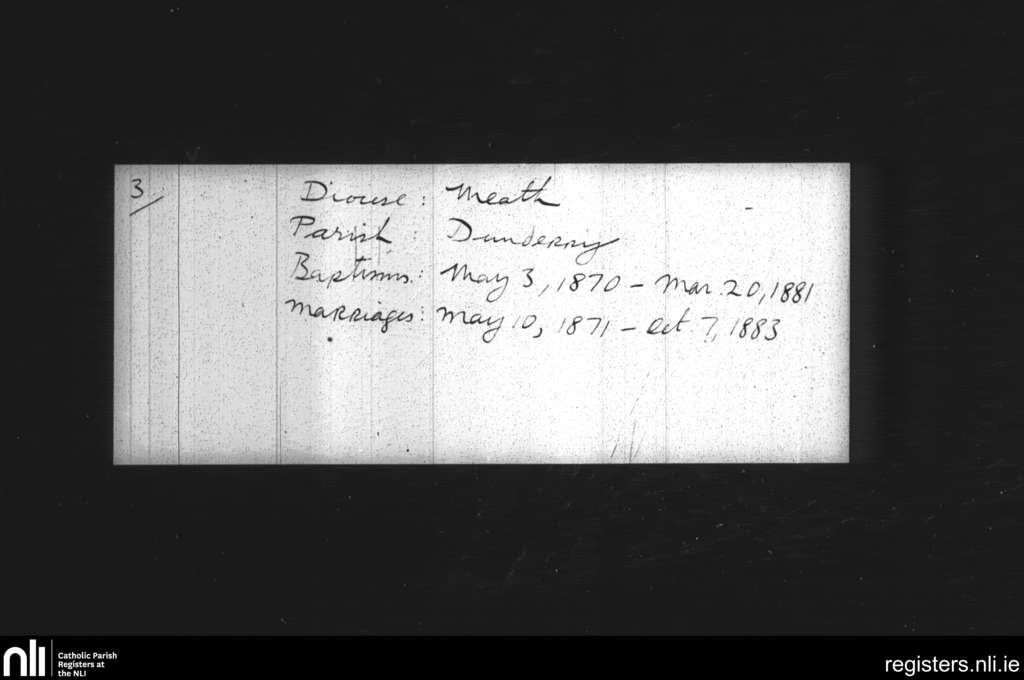 3/
Diocese : Meath
Parish : Dunderry
Baptisms : May 3, 1870 – Mar. 20, 1881
Marriages : May 10, 1871 – Oct. 7, 1883
nli
Catholic Parish
Registers at
the NLI
registers.nli.ie